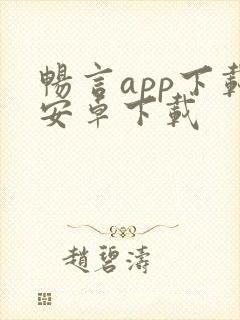 暢言app下載
安卓下載
趙碧濤